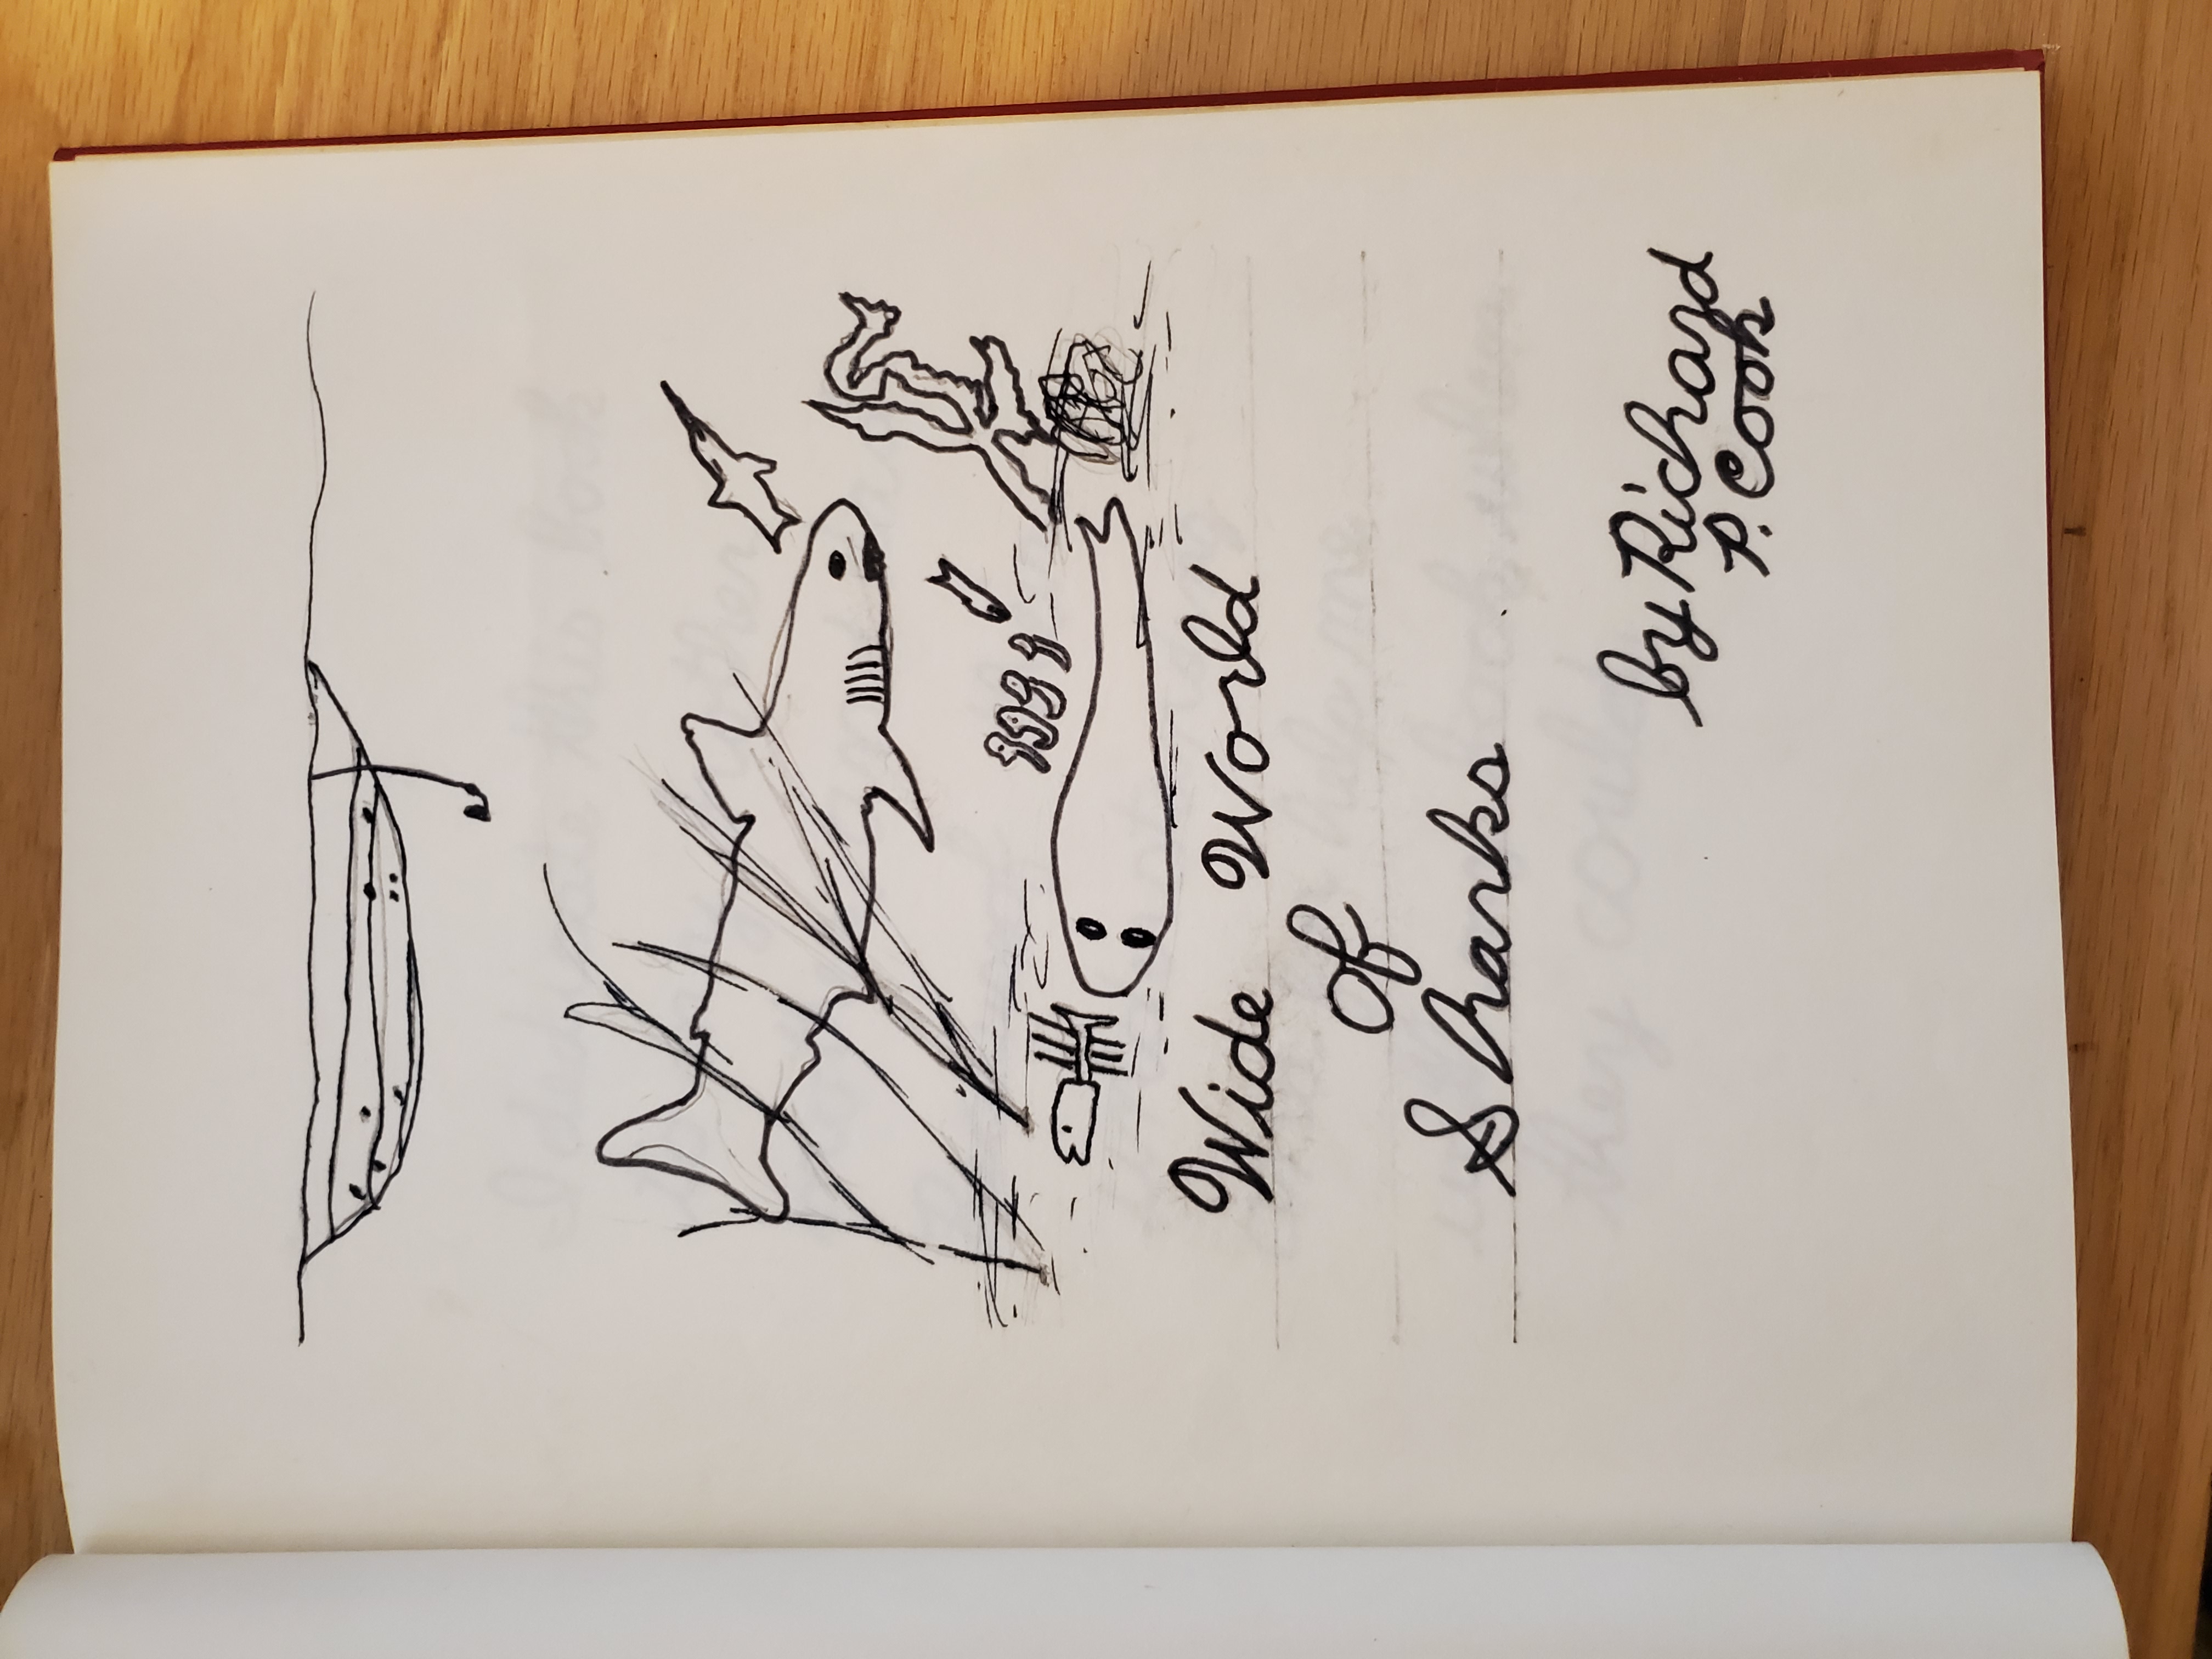 Wide World
of
Sharks
by Richard
P. Cook